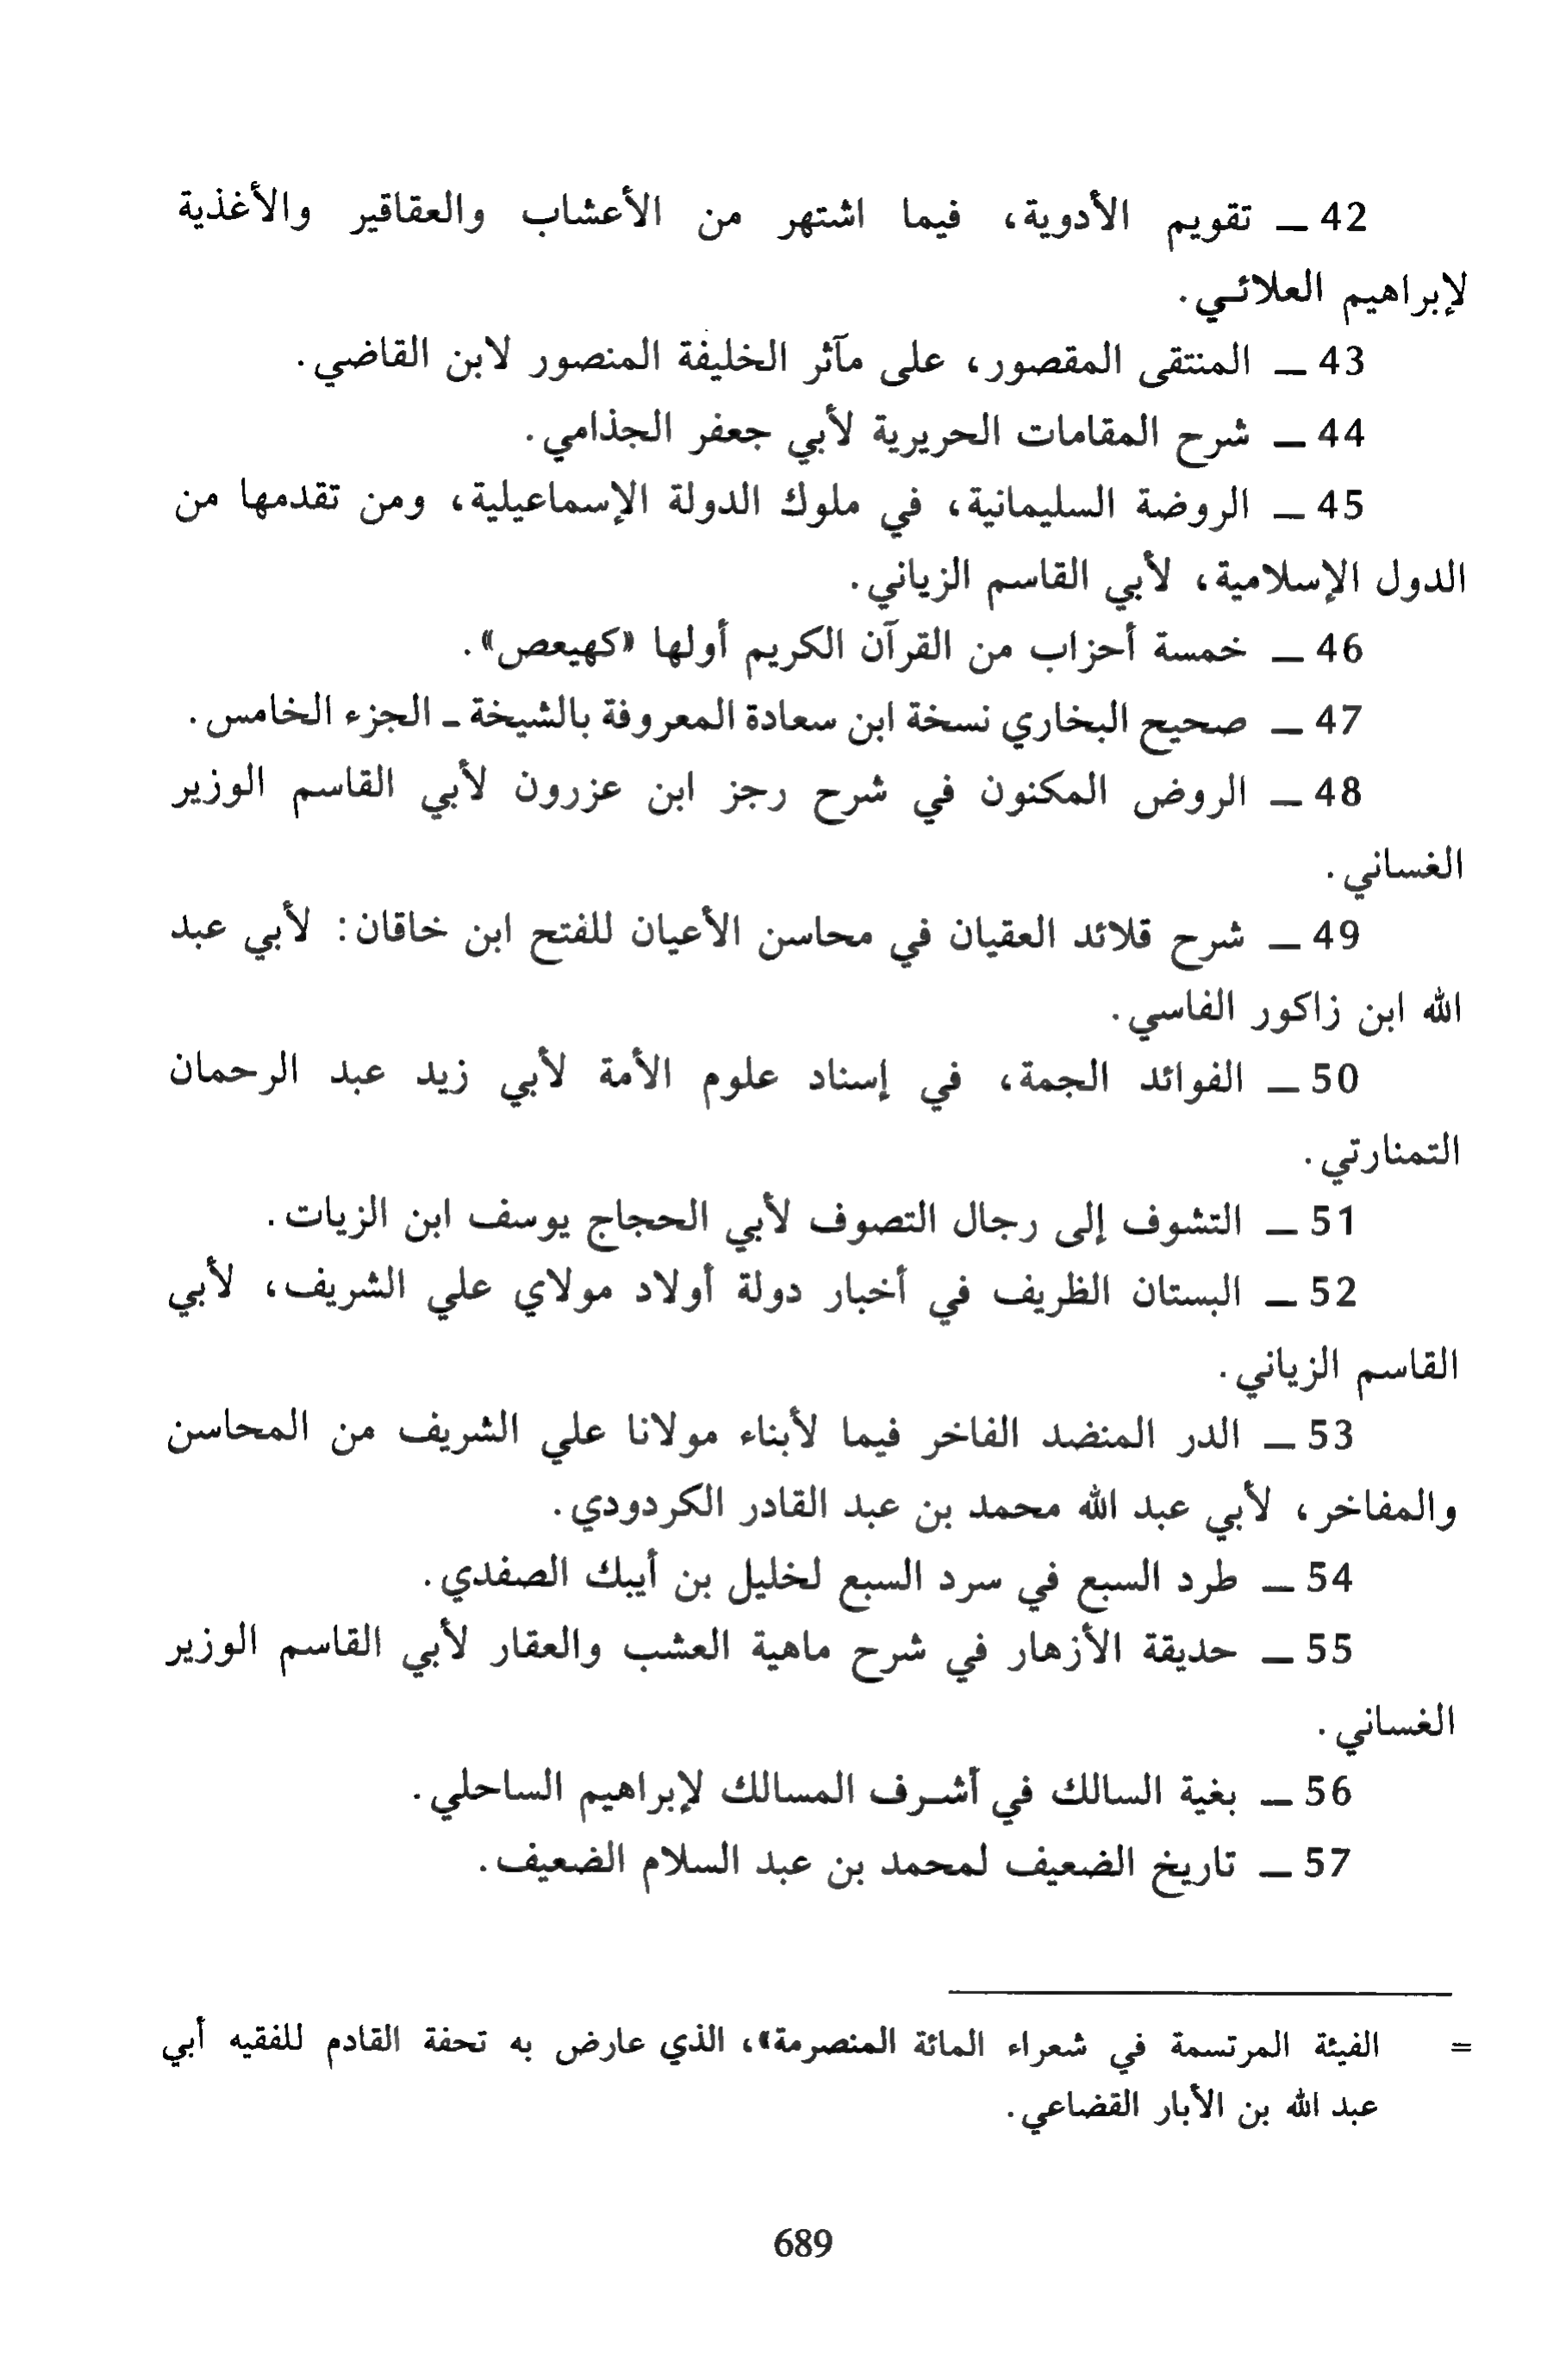 42 ــ تقويم الأدوية، فيما اشتهر من الأعشاب والعقاقير والأغذية
لإبراهيم العلائي.
43 ــ المنتقى المقصور، على مآثر الخليفة المنصور لابن القاضي.
44 ــ شرح المقامات الحريرية لأبي جعفر الجذامي.
45 ــ الروضة السليمانية، في ملوك الدولة الإسماعيلية، ومن تقدمها من
الدول الإسلامية، لأبي القاسم الزياني.
46 ــ خمسة أحزاب من القرآن الكريم أولها «كهيعص».
47 ــ صحيح البخاري نسخة ابن سعادة المعروفة بالشيخة ـ الجزء الخامس.
48 ــ الروض المكنون في شرح رجز ابن عزرون لأبي القاسم الوزير
الغساني.
49 ــ شرح قلائد العقيان في محاسن الأعيان للفتح ابن خاقان: لأبي عبد
الله ابن زاكور الفاسي.
50 ــ الفوائد الجمة، في إسناد علوم الأمة لأبي زيد عبد الرحمان
التمنارتي.
51 ــ التشوف إلى رجال التصوف لأبي الحجاج يوسف ابن الزيات.
52 ــ البستان الظريف في أخبار دولة أولاد مولاي علي الشريف، لأبي
القاسم الزياني.
53 ــ الدر المنضد الفاخر فيما لأبناء مولانا علي الشريف من المحاسن
والمفاخر، لأبي عبد الله محمد بن عبد القادر الكردودي.
54 ــ طرد السبع في سرد السبع لخليل بن أيبك الصفدي.
55 ــ حديقة الأزهار في شرح ماهية العشب والعقار لأبي القاسم الوزير
الغساني.
56 ــ بغية السالك في أشرف المسالك لإبراهيم الساحلي.
57 ــ تاريخ الضعيف لمحمد بن عبد السلام الضعيف.
= الفيئة المرتسمة في شعراء المائة المنصرمة»، الذي عارض به تحفة القادم للفقيه أبي
عبد الله بن الأبار القضاعي.
689